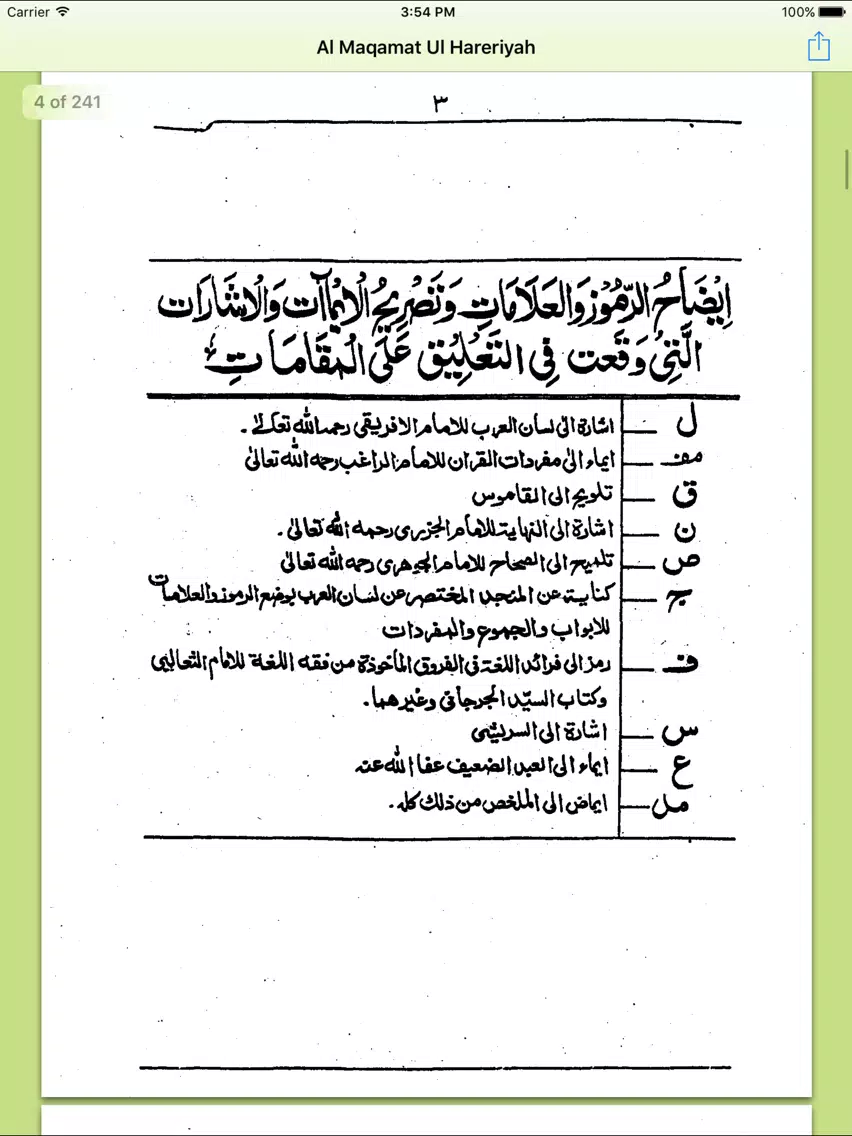 Carrier 3:54 PM 100%
Al Maqamat Ul Hareriyah
4 of 241
٣
اِيْضَاحُ الرُّمُوْزِ وَالْعَلَامَاتِ وَتَصْرِيْحُ الْاِيْمَاآت وَالْاِشَارَات
الَّتِيْ وَقَعَت فِي التَّعْلِيْقِ عَلَى الْمَقَامَاتِ
ل — اشارة الى لسان العرب للامام الافريقى رحمه الله تعالى .
مف — ايماء الى مفردات القرآن للامام الراغب رحمه الله تعالى
ق — تلويح الى القاموس
ن — اشارة الى النهاية للامام الجزرى رحمه الله تعالى .
ص — تلميح الى الصحاح للامام الجوهرى رحمه الله تعالى
ج — كناية عن المنجد المختصر عن لسان العرب بوضع الرموز والعلامات
للابواب والجموع والمفردات
ف — رمز الى فرائد اللغة فى الفروق المأخوذة من فقه اللغة للامام الثعالبى
وكتاب السيّد الجرجانى وغيرهما .
س — اشارة الى السريشى
ع — ايماء الى العبد الضعيف عفا الله عنه
مل — ايماض الى الملخص من ذلك كله .